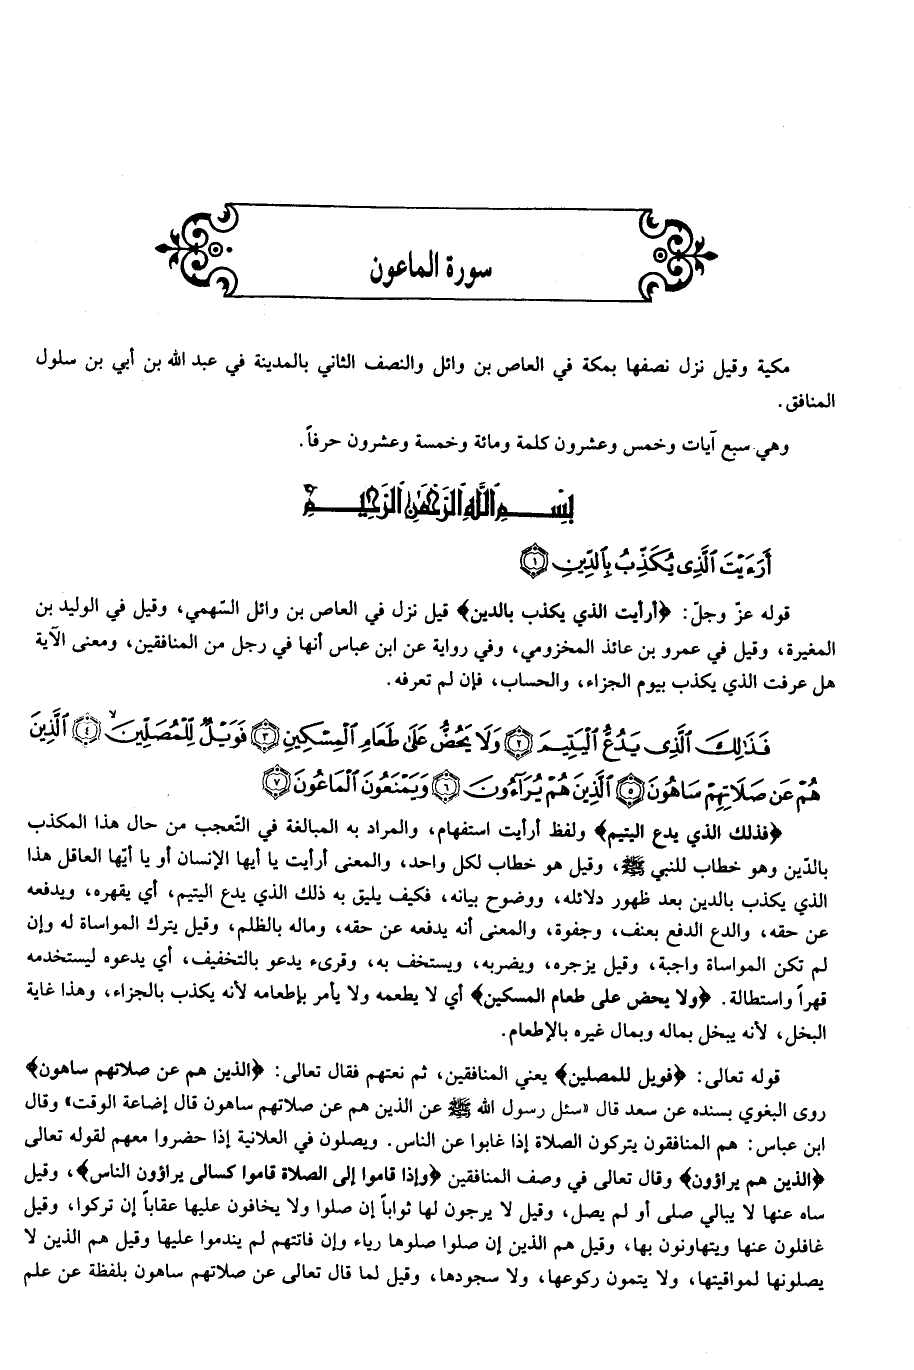 سورة الماعون
مكية وقيل نزل نصفها بمكة في العاص بن وائل والنصف الثاني بالمدينة في عبد الله بن أبي بن سلول
المنافق.
وهي سبع آيات وخمس وعشرون كلمة ومائة وخمسة وعشرون حرفاً.
بِسْمِ ٱللَّهِ ٱلرَّحْمَٰنِ ٱلرَّحِيمِ
أَرَءَيْتَ ٱلَّذِى يُكَذِّبُ بِٱلدِّينِ ﴿١﴾
قوله عزّ وجلّ: ﴿أرأيت الذي يكذب بالدين﴾ قيل نزل في العاص بن وائل السّهمي، وقيل في الوليد بن
المغيرة، وقيل في عمرو بن عائذ المخزومي، وفي رواية عن ابن عباس أنها في رجل من المنافقين، ومعنى الآية
هل عرفت الذي يكذب بيوم الجزاء، والحساب، فإن لم تعرفه.
فَذَٰلِكَ ٱلَّذِى يَدُعُّ ٱلْيَتِيمَ ﴿٢﴾ وَلَا يَحُضُّ عَلَىٰ طَعَامِ ٱلْمِسْكِينِ ﴿٣﴾ فَوَيْلٌ لِّلْمُصَلِّينَ ﴿٤﴾ ٱلَّذِينَ
هُمْ عَن صَلَاتِهِمْ سَاهُونَ ﴿٥﴾ ٱلَّذِينَ هُمْ يُرَآءُونَ ﴿٦﴾ وَيَمْنَعُونَ ٱلْمَاعُونَ ﴿٧﴾
﴿فذلك الذي يدع اليتيم﴾ ولفظ أرأيت استفهام، والمراد به المبالغة في التّعجب من حال هذا المكذب
بالدّين وهو خطاب للنبي ﷺ، وقيل هو خطاب لكل واحد، والمعنى أرأيت يا أيها الإنسان أو يا أيّها العاقل هذا
الذي يكذب بالدين بعد ظهور دلائله، ووضوح بيانه، فكيف يليق به ذلك الذي يدع اليتيم، أي يقهره، ويدفعه
عن حقه، والدع الدفع بعنف، وجفوة، والمعنى أنه يدفعه عن حقه، وماله بالظلم، وقيل يترك المواساة له وإن
لم تكن المواساة واجبة، وقيل يزجره، ويضربه، ويستخف به، وقرىء يدعو بالتخفيف، أي يدعوه ليستخدمه
قهراً واستطالة. ﴿ولا يحض على طعام المسكين﴾ أي لا يطعمه ولا يأمر بإطعامه لأنه يكذب بالجزاء، وهذا غاية
البخل، لأنه يبخل بماله وبمال غيره بالإطعام.
قوله تعالى: ﴿فويل للمصلين﴾ يعني المنافقين، ثم نعتهم فقال تعالى: ﴿الذين هم عن صلاتهم ساهون﴾
روى البغوي بسنده عن سعد قال «سئل رسول الله ﷺ عن الذين هم عن صلاتهم ساهون قال إضاعة الوقت» وقال
ابن عباس: هم المنافقون يتركون الصلاة إذا غابوا عن الناس. ويصلون في العلانية إذا حضروا معهم لقوله تعالى
﴿الذين هم يراؤون﴾ وقال تعالى في وصف المنافقين ﴿وإذا قاموا إلى الصلاة قاموا كسالى يراؤون الناس﴾، وقيل
ساه عنها لا يبالي صلى أو لم يصل، وقيل لا يرجون لها ثواباً إن صلوا ولا يخافون عليها عقاباً إن تركوا، وقيل
غافلون عنها ويتهاونون بها، وقيل هم الذين إن صلوا صلوها رياء وإن فاتتهم لم يندموا عليها وقيل هم الذين لا
يصلونها لمواقيتها، ولا يتمون ركوعها، ولا سجودها، وقيل لما قال تعالى عن صلاتهم ساهون بلفظة عن علم